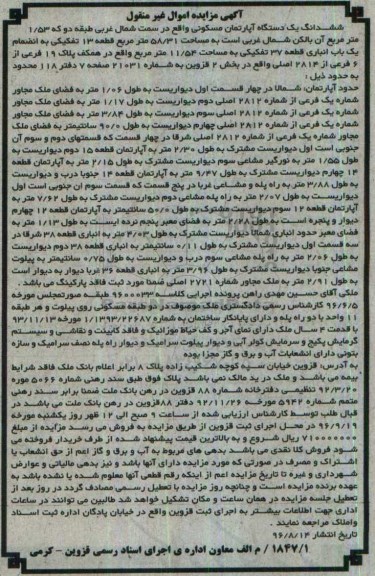 آگهی مزایده اموال غیر منقول
ششدانگ یک دستگاه آپارتمان مسکونی واقع در سمت شمال غربی طبقه دو که ۱/۵۳
متر مربع آن بالکن شمال غربی است به مساحت ۵۸/۳۱ متر مربع قطعه ۱۳ تفکیکی به انضمام
یک باب انباری قطعه ۳۷ تفکیکی به مساحت ۱۱/۵۴ متر مربع واقع در همکف پلاک ۱۹ فرعی از
۶ فرعی از ۲۸۱۴ اصلی واقع در بخش ۲ قزوین به شماره ۲۱۰۳۱ صفحه ۷ دفتر ۱۱۸ محدود
به حدود ذیل :
حدود آپارتمان: شمالا در چهار قسمت اول دیواریست به طول ۱/۰۶ متر به فضای ملک مجاور
شماره یک فرعی از شماره ۲۸۱۲ اصلی دوم دیواریست به طول ۱/۱۷ متر به فضای ملک مجاور
شماره یک فرعی از شماره ۲۸۱۲ اصلی سوم دیواریست به طول ۳/۸۴ متر به فضای ملک مجاور
شماره یک فرعی از شماره ۲۸۱۲ اصلی چهارم دیواریست به طول ۹۰/۰ سانتیمتر به فضای ملک
مجاور شماره یک فرعی از شماره ۲۸۱۲ اصلی شرقا در چهار قسمت که قسمتهای دوم و سوم آن
جنوبی است اول دیواریست مشترک به طول ۲/۳۰ متر به آپارتمان قطعه ۱۵ دوم دیواریست به
طول ۱/۵۵ متر به نورگیر مشاعی سوم دیواریست مشترک به طول ۲/۱۵ متر به آپارتمان قطعه
۱۴ چهارم دیواریست مشترک به طول ۹/۴۷ متر به آپارتمان قطعه ۱۴ جنوبا درب و دیواریست
به طول ۳/۸۸ متر به راه پله و مشاعی غربا در پنج قسمت که قسمت سوم آن جنوبی است اول
دیواریست به طول ۲/۰۷ متر به راه پله مشاعی دوم دیواریست مشترک به طول ۷/۶۲ متر به
آپارتمان قطعه ۱۲ سوم دیواریست مشترک به طول ۵۰/۰ سانتیمتر به آپارتمان قطعه ۱۲ چهارم
دیوار و پنجره است به طول ۲/۸۸ متر به فضای معبر پنجم نرده ایست به طول ۱/۱۳ متر به
فضای معبر حدود انباری شمالا دیواریست مشترک به طول ۴/۰۳ متر به انباری قطعه ۳۸ شرقا در
سه قسمت اول دیواریست مشترک به طول ۰/۱۱ سانتیمتر به انباری قطعه ۳۸ دوم دیواریست
به طول ۲/۰۶ متر به راه پله مشاعی سوم درب و دیواریست به طول ۰/۷۵ سانتیمتر به پیلوت
مشاعی جنوبا دیواریست مشترک به طول ۳/۹۶ متر به انباری قطعه ۳۶ غربا دیوار به دیوار است
به طول ۲/۹۱ متر به ملک مجاور شماره ۲۷۲۱ اصلی ضمنا مورد ثبت فاقد پارکینگ می باشد .
ملکی آقای حسین مهدی راهن پرونده اجرایی کلاسه ۹۶۰۰۰۳۳ طبق صورتمجلس مورخه
۹۶/۶/۵ کارشناس رسمی دادگستری ملک موصوف در دو طبقه مسکونی روی پیلوت و هر طبقه
۱۱ واحد با دو راه پله و دارای پایانکار ساختمان به شماره ۱/۱۳۹۳/۳۲۶۸۷ مورخه ۹۳/۱۱/۱۳
با قدمت ۴ سال ملک دارای نمای آجر و کف حیاط موزائیک و فاقد کابینت و نقاشی و سیستم
گرمایش پکیج و سرمایش کولر آبی و دیوار پیلوت سرامیک و دیوار راه پله نصف سرامیک و سازه
بتونی دارای انشعابات آب و برق و گاز مجزا بوده
به آدرس: قزوین خیابان سپه کوچه شکیب زاده پلاک ۸ برابر اعلام بانک ملک فاقد شرایط
بیمه می باشند و ملک در ید مالک نمی باشد پلاک فوق طبق سند رهنی شماره ۵۰۶۶ موره
۹۴/۳/۲۰ تنظیمی دفترخانه شماره ۸۸ قزوین در رهن بانک ملت ضمنا برابر سند رهنی
متمم شماره ۵۹۴۲ مورخه ۹۴/۱۱/۲۶ دفتر ۸۸ قزوین در رهن بانک ملت می باشند در
قبال طلب توسط کارشناس ارزیابی شده از ساعت ۹ صبح الی ۱۲ ظهر روز یکشنبه مورخه
۹۶/۹/۱۹ در محل اجرای ثبت قزوین از طریق مزایده به فروش می رسد مزایده از مبلغ
۷۱۰۰۰۰۰۰۰ ریال شروع و به بالاترین قیمت پیشنهاد شده از طرف خریدار فروخته می
شود فروش کلا نقدی می باشد بدهی های مربوط به آب و برق و گاز اعم از حق انشعاب یا
اشتراک و مصرف در صورتی که مورد مزایده دارای آنها باشد و نیز بدهی مالیاتی و عوارض
شهرداری و غیره تا تاریخ مزایده اعم از اینکه رقم قطعی آنها معلوم شده یا نشده باشد به
عهده برنده مزایده است و چنانچه روز مزایده با تعطیل رسمی مصادف گردد در روز بعد از
تعطیل جلسه مزایده در همان ساعت و مکان تشکیل خواهد شد طالبین می توانند در ساعات
اداری جهت اطلاعات بیشتر به اجرای ثبت قزوین واقع در خیابان پادگان اداره ثبت اسناد
واملاک مراجعه نمایند .
تاریخ انتشار ۹۶/۸/۱۴
۱۸۴۷/۱ / م الف معاون اداره ی اجرای اسناد رسمی قزوین - کرمی